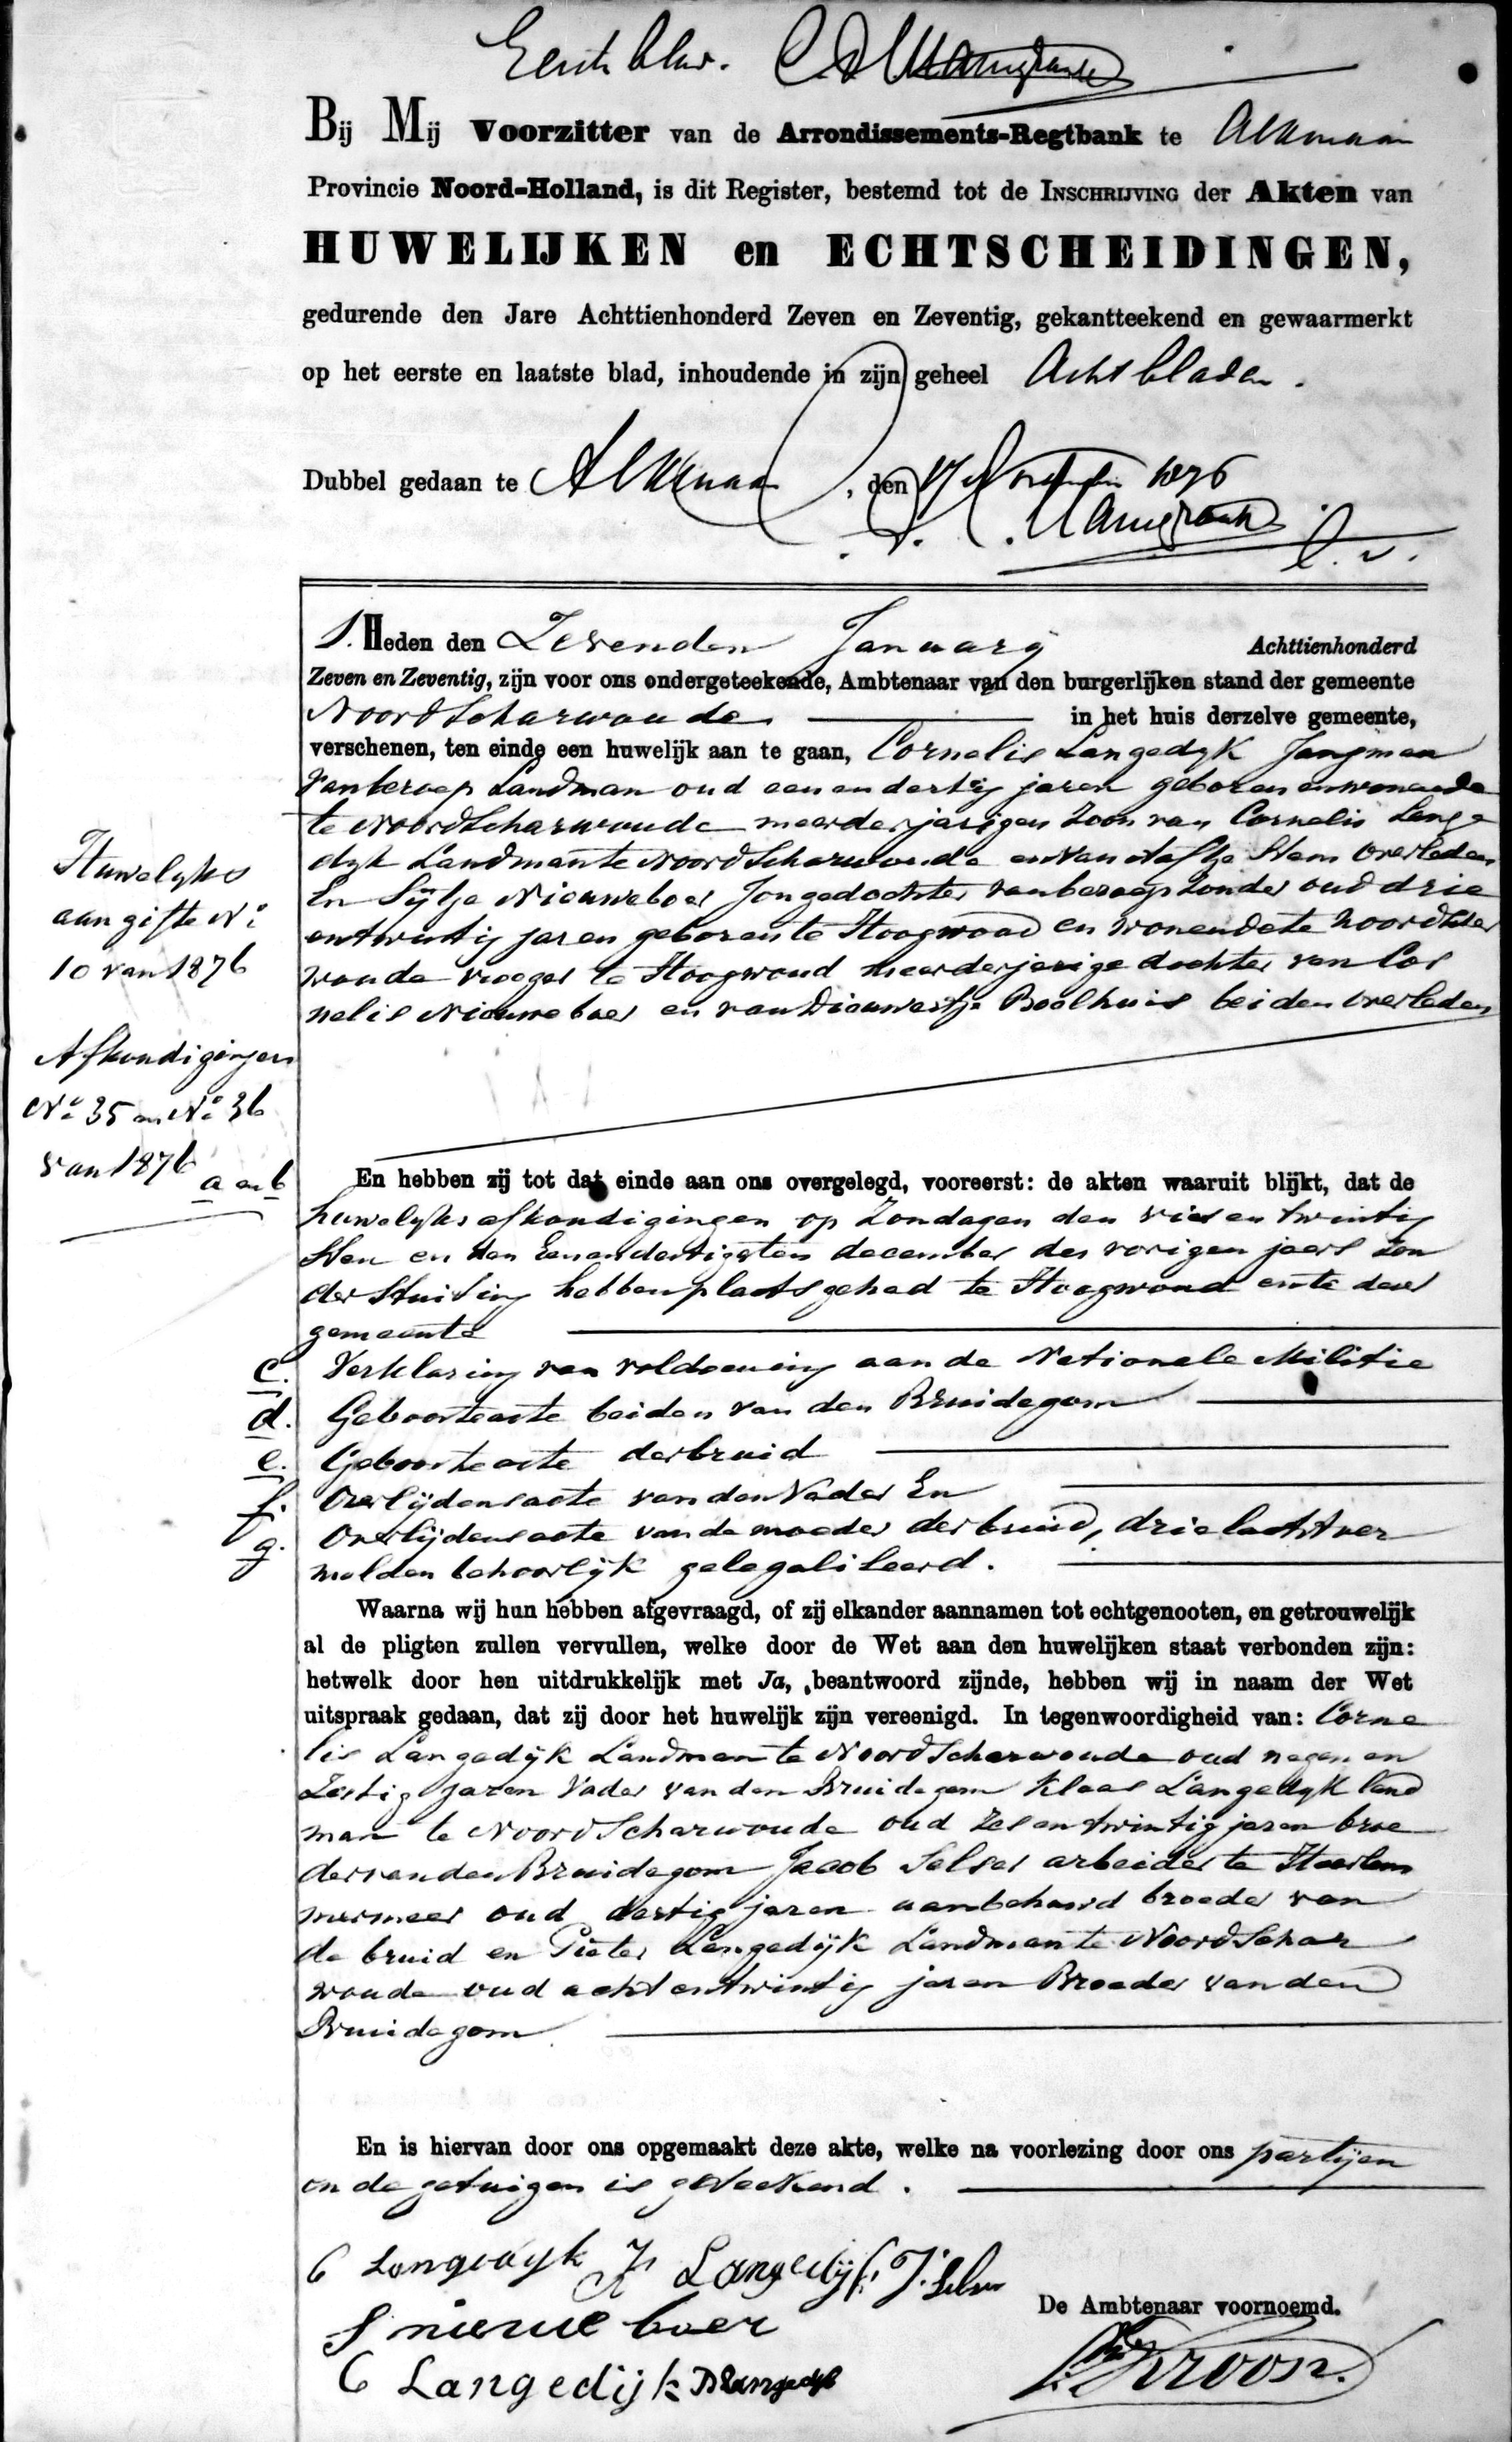 Eerste blad.
Bij Mij Voorzitter van de Arrondissements-Regtbank te Alkmaar
Provincie Noord-Holland, is dit Register, bestemd tot de Inschrijving der Akten van
HUWELIJKEN en ECHTSCHEIDINGEN,
gedurende den Jare Achttienhonderd Zeven en Zeventig, gekantteekend en gewaarmerkt
op het eerste en laatste blad, inhoudende in zijn geheel Acht bladen.
Dubbel gedaan te Alkmaar, den 17 November 1876
1. Heden den Zevenden Januarij Achttienhonderd
Zeven en Zeventig, zijn voor ons ondergeteekende, Ambtenaar van den burgerlijken stand der gemeente
NoordScharwoude in het huis derzelve gemeente,
verschenen, ten einde een huwelijk aan te gaan, Cornelis Langedyk Jongman
van beroep Landman oud een en dertig jaren geboren en wonende
te NoordScharwoude meerderjarigen Zoon van Cornelis Lange
dyk Landman te NoordScharwoude en van Aafje Stam overleden
En Sijtje Nieuweboer Jongedochter van beroep Zonder oud drie
entwintig jaren geboren te Hoogwoud en wonende te Noordschar
woude vroeger te Hoogwoud meerderjarige dochter van Cor
nelis Nieuweboer en van Dieuwertje Boolhuis beiden overleden
Huwelyks
aangifte No
10 van 1876
Afkondigingen
No 35 en No 36
van 1876 a en b
En hebben zij tot dat einde aan ons overgelegd, vooreerst: de akten waaruit blijkt, dat de
huwelyks afkondigingen op Zondagen den vier en twintig
sten en den Eenendertigsten december des vorigen jaars zon
der Stuiting hebben plaats gehad te Hoogwoud en te dezer
gemeente
c. Verklaring van voldoening aan de Nationale Militie
d. Geboorteacte beiden van den Bruidegom
e. Geboorteacte der bruid
f. Overlijdensacte van den Vader En
g. Overlijdensacte van de moeder der bruid, drie laatst ver
melden behoorlijk gelegaliseerd.
Waarna wij hun hebben afgevraagd, of zij elkander aannamen tot echtgenooten, en getrouwelijk
al de pligten zullen vervullen, welke door de Wet aan den huwelijken staat verbonden zijn:
hetwelk door hen uitdrukkelijk met Ja, beantwoord zijnde, hebben wij in naam der Wet
uitspraak gedaan, dat zij door het huwelijk zijn vereenigd. In tegenwoordigheid van: Corne
lis Langedijk Landman te NoordScharwoude oud negen en
Zestig jaren Vader van den Bruidegom Klaas Langedyk land
man te NoordScharwoude oud zes en twintig jaren broe
der van den Bruidegom Jacob Selser arbeider te Haarlem
mermeer oud dertig jaren aanbehuwd broeder van
de bruid en Pieter Langedijk Landman te NoordSchar
woude oud acht en twintig jaren Broeder van den
Bruidegom
En is hiervan door ons opgemaakt deze akte, welke na voorlezing door ons partijen
en de getuigen is geteekend.
C Langedyk K Langedijk J. Selser
S nieuweboer
C Langedijk P Langedijk
De Ambtenaar voornoemd.
Kroon.